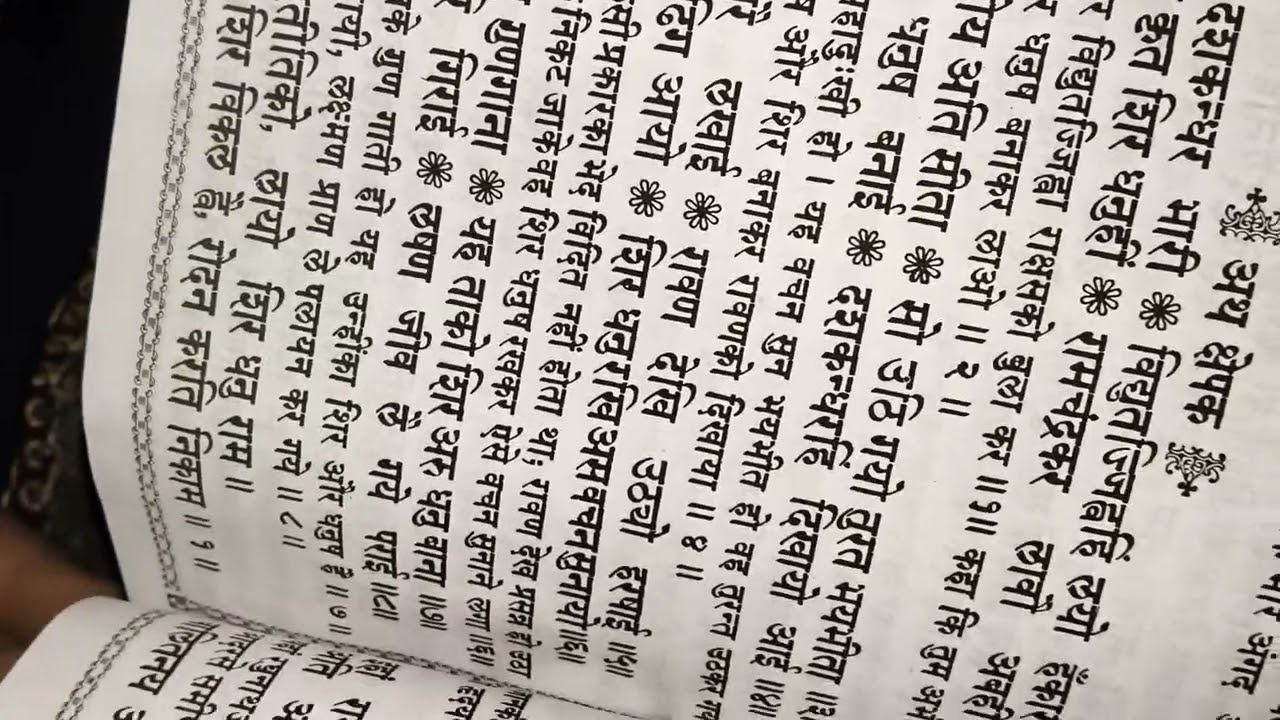 अथ क्षेपक
दशकन्धर भारी ❋ विद्युतज्जिह्वहिं लयो हँकार
कृत शिर धनुहीं ❋ रामचंद्रकर लावौ अबहीं
र विद्युतज्जिह्वा राक्षसको बुला कर ॥१॥ कहा कि तुम अभी
र धनुष बनाकर लाओ ॥ २ ॥
य अति सीता ❋ सो उठि गयो तुरत भयभीता ॥३
धनुष बनाई ❋ दशकन्धरहिं दिखायो आई ॥४॥
महादुःखी हो । यह वचन सुन भयभीत हो वह तुरन्त उठकर गया
और शिर बनाकर रावणको दिखाया ॥ ४ ॥
लखाई ❋ रावण देखि उठयो हरषाई ॥५॥
ढिग आयो ❋ शिर धनु राखि अस वचन सुनायो ॥६॥
सी प्रकारका भेद विदित नहीं होता था; रावण देख प्रसन्न हो उठा
निकट जाके वह शिर धनुष रखकर ऐसे वचन सुनाने लगा ॥६॥
गुणगाना ❋ यह ताको शिर अरु धनु बाना ॥७॥
गिराई ❋ लषण जीव लै गये पराई ॥८॥
के गुण गाती हो यह उन्हींका शिर और धनुष है ॥ ७ ॥
लक्ष्मण प्राण ले पलायन कर गये ॥ ८ ॥
तीतिको, लायो शिर धनु राम ॥
शिर विकल है, रोदन करति निकाम ॥ १ ॥